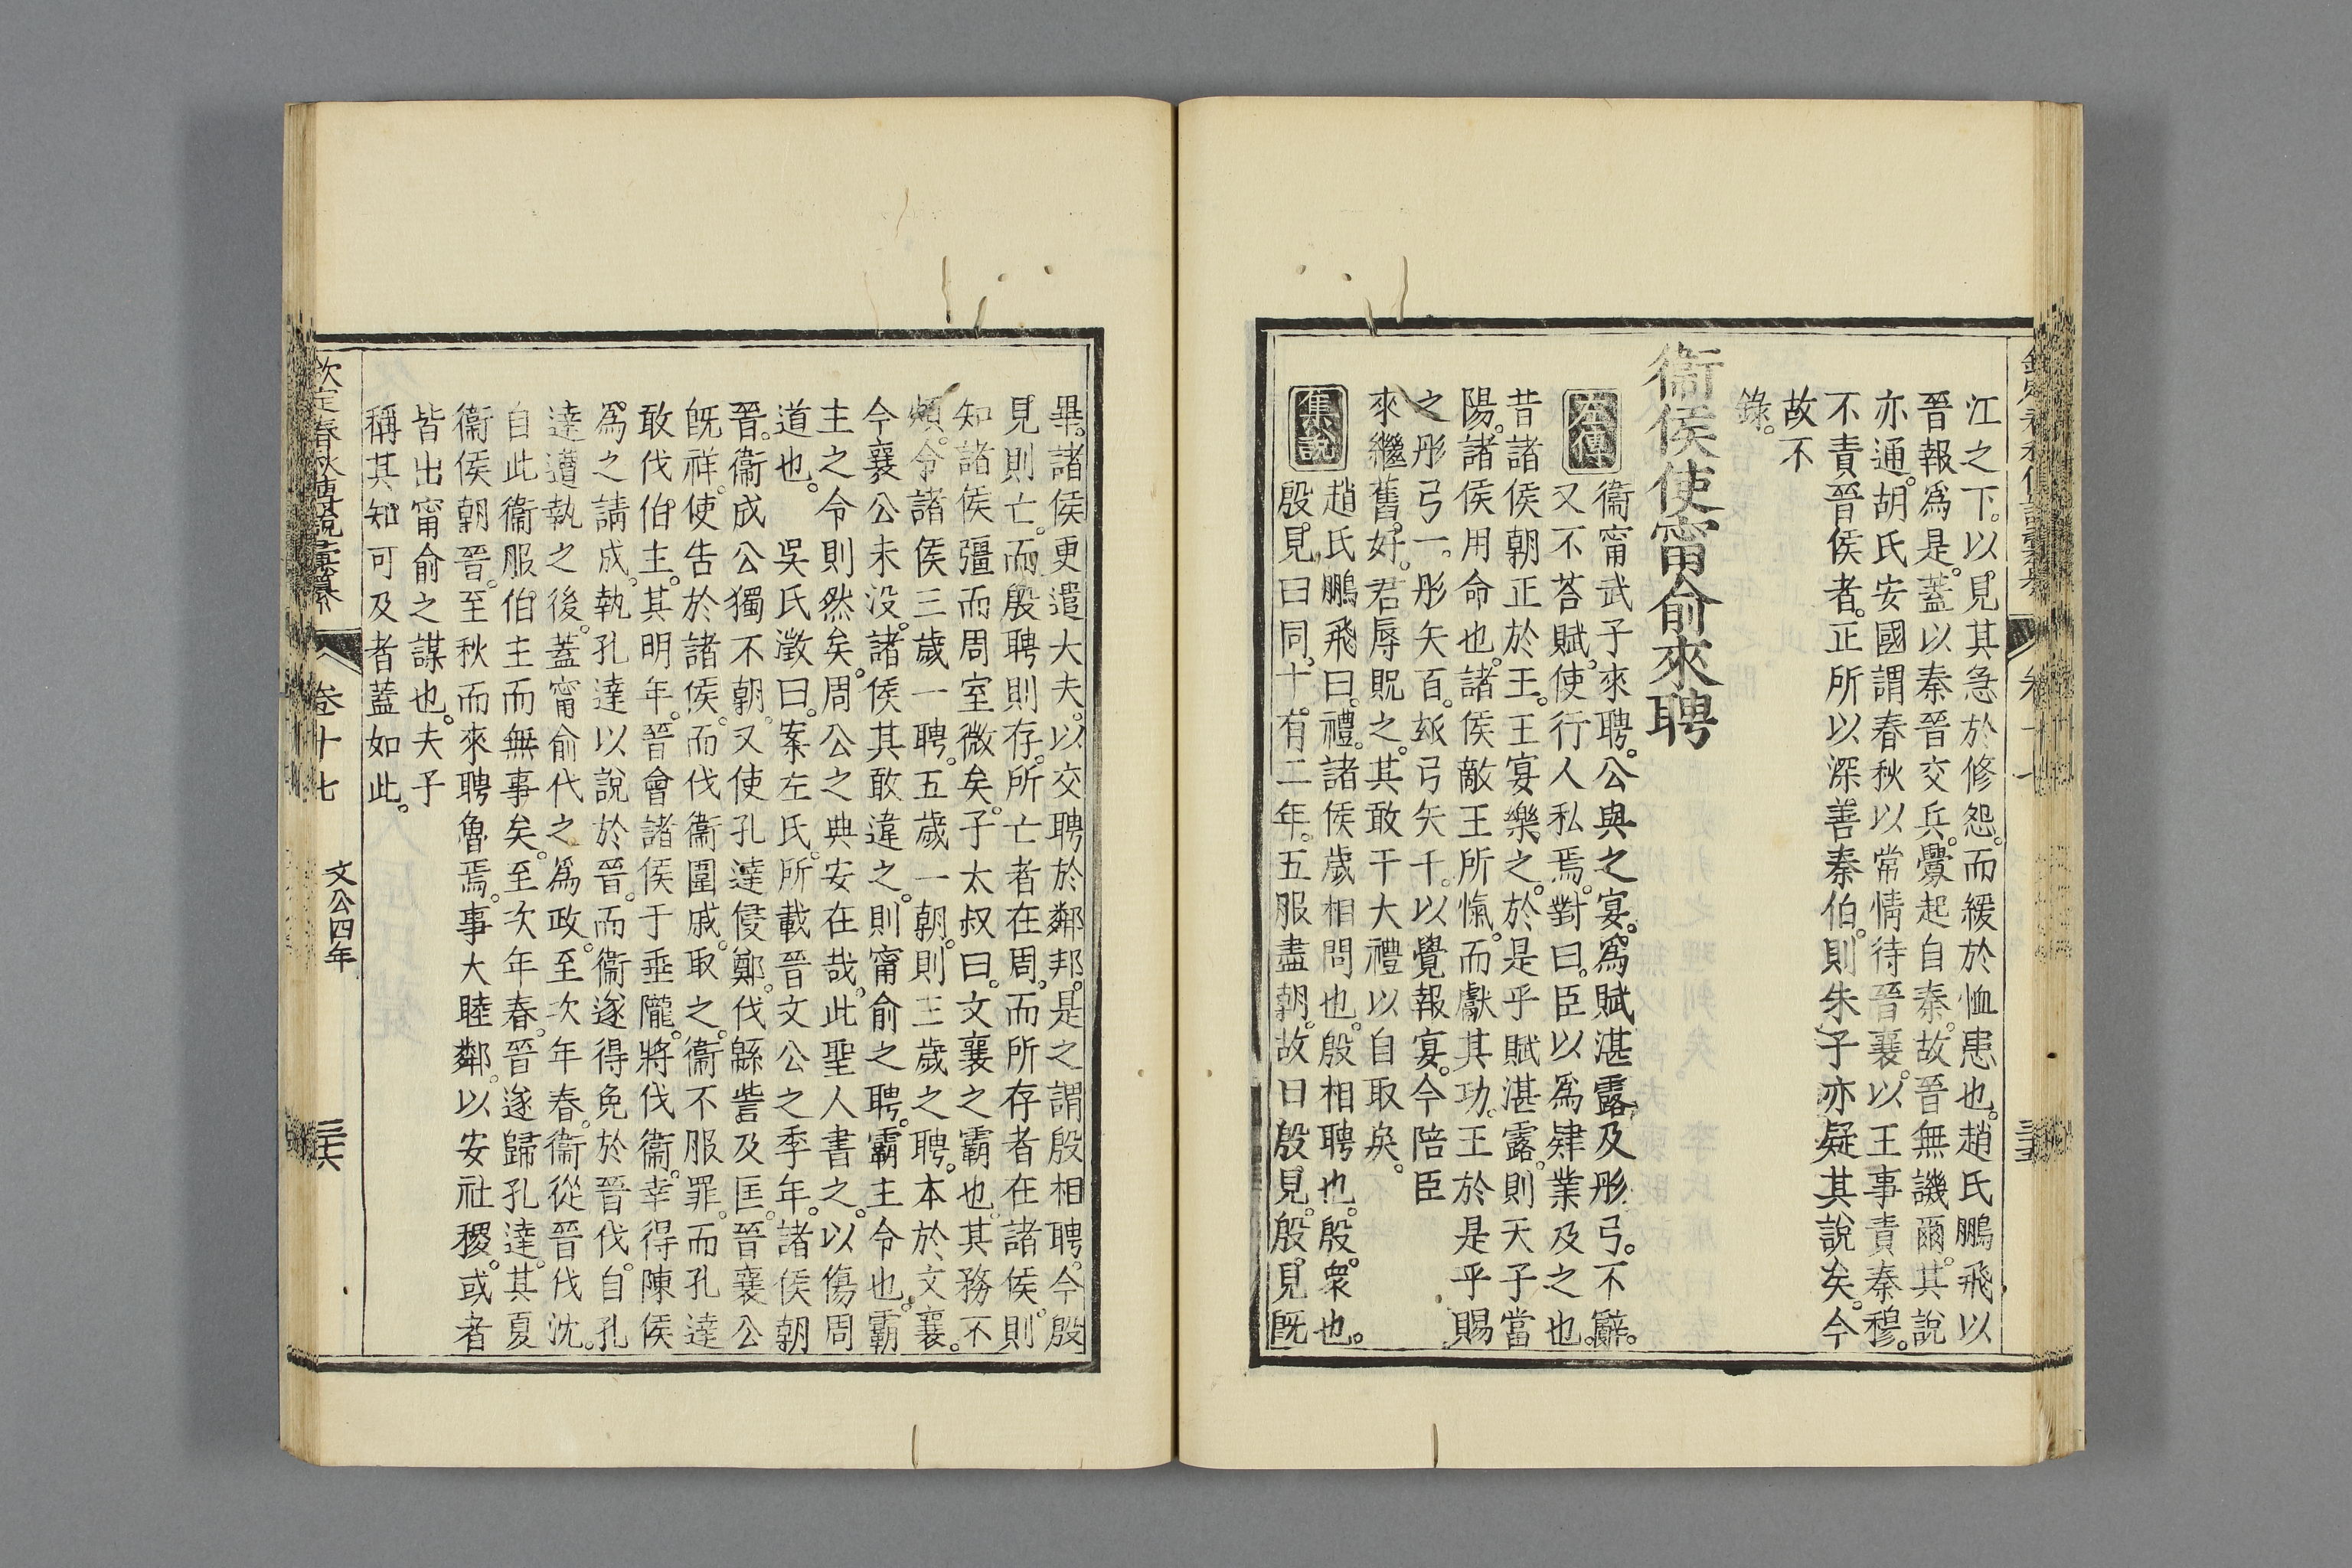 江之下。以見其急於修怨。而緩於恤患也。趙氏鵬飛以
晉報爲是。蓋以秦晉交兵。釁起自秦。故晉無譏爾。其說
亦通。胡氏安國謂春秋以常情待晉襄。以王事責秦穆。
不責晉侯者。正所以深善秦伯。則朱子亦疑其說矣。今
故不
錄。
衞侯使甯俞來聘
左傳 衞甯武子來聘。公與之宴。爲賦湛露及彤弓。不辭。
又不荅賦。使行人私焉。對曰。臣以爲肄業及之也。
昔諸侯朝正於王。王宴樂之。於是乎賦湛露。則天子當
陽。諸侯用命也。諸侯敵王所愾。而獻其功。王於是乎賜
之彤弓一。彤矢百。玈弓矢千。以覺報宴。今陪臣
來繼舊好。君辱貺之。其敢干大禮以自取戾。
集說 趙氏鵬飛曰。禮。諸侯歲相問也。殷相聘也。殷。衆也。
殷。見曰同。十。有二年。五服盡朝。故曰殷見。殷。見既
畢。諸侯更遣大夫。以交聘於鄰邦。是之謂殷相聘。今殷
見則亡。而殷聘則存。所亡者在周。而所存者在諸侯。則
知諸侯彊而周室微矣。子太叔曰。文襄之霸也。其務不
煩。令諸侯三歲一聘。五歲一朝。則三歲之聘。本於文襄。
今襄公未没。諸侯其敢違之。則甯俞之聘。霸主令也。霸
主之令則然矣。周公之典安在哉。此聖人書之。以傷周
道也。 吳氏澂曰。案左氏所載。晉文公之季年。諸侯朝
晉。衞成公獨不朝。又使孔達侵鄭。伐緜訾及匡。晉襄公
旣祥。使告於諸侯。而伐衞圍戚。取之。衞不服罪。而孔達
敢伐伯主。其明年。晉會諸侯于垂隴。將伐衞。幸得陳侯
爲之請成。執孔達以說於晉。而衞遂得免於晉伐。自孔
達遭執之後。蓋甯俞代之爲政。至次年春。衞從晉伐沈。
自此衞服伯主而無事矣。至次年春。晉遂歸孔達。其夏
衞侯朝晉。至秋而來聘魯焉。事大睦鄰。以安社稷。或者
皆出甯俞之謀也。夫子
稱其知可及者蓋如此。
欽定春秋傳說彙纂 卷十七 文公四年 三十六